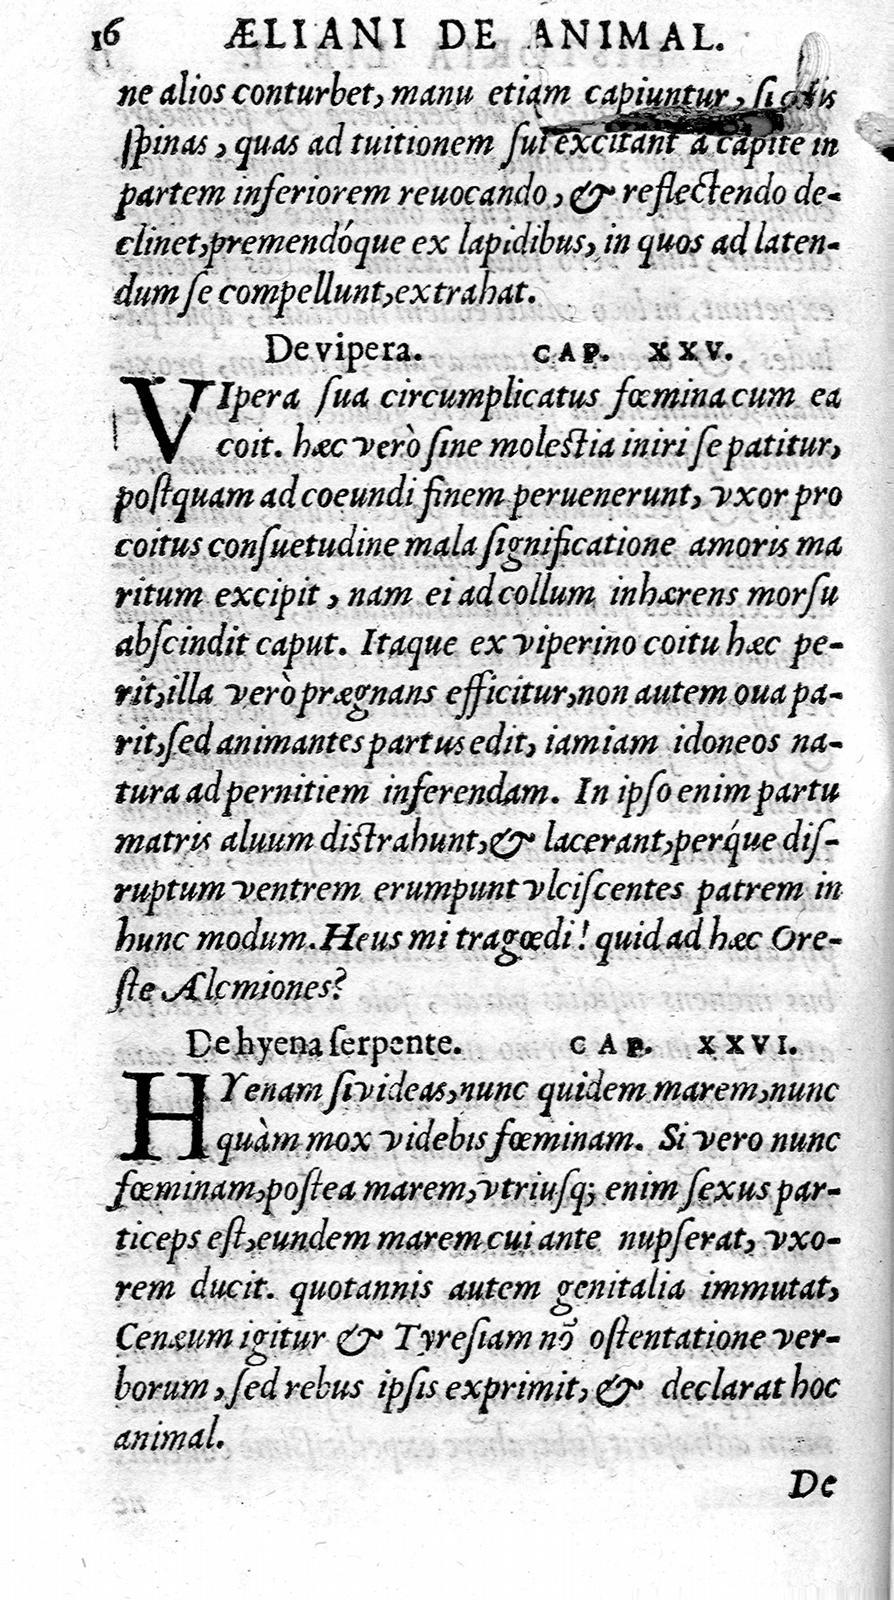 16 ÆLIANI DE ANIMAL.
ne alios conturbet, manu etiam capiuntur, si
ſpinas, quas ad tuitionem ſui excitant a capite in
partem inferiorem reuocando, & reflectendo de-
clinet, premendóque ex lapidibus, in quos ad laten-
dum ſe compellunt, extrahat.
De vipera. CAP. XXV.
VIpera ſua circumplicatus fœmina cum ea
coit. hæc verò ſine moleſtia iniri ſe patitur,
poſtquam ad coeundi finem peruenerunt, vxor pro
coitus conſuetudine mala ſignificatione amoris ma
ritum excipit, nam ei ad collum inhærens morſu
abſcindit caput. Itaque ex viperino coitu hæc pe-
rit, illa verò prægnans efficitur, non autem oua pa-
rit, ſed animantes partus edit, iam iam idoneos na-
tura ad pernitiem inferendam. In ipſo enim partu
matris aluum diſtrahunt, & lacerant, perq́ue diſ-
ruptum ventrem erumpunt vlciſcentes patrem in
hunc modum. Heus mi tragœdi! quid ad hæc Ore-
ſte Ælcmiones?
De hyena ſerpente. CAP. XXVI.
HYenam ſi videas, nunc quidem marem, nunc
quàm mox videbis fœminam. Si vero nunc
fœminam, poſtea marem, vtriuſq; enim ſexus par-
ticeps eſt, eundem marem cui ante nupſerat, vxo-
rem ducit. quotannis autem genitalia immutat,
Cenæum igitur & Tyreſiam nō oſtentatione ver-
borum, ſed rebus ipſis exprimit, & declarat hoc
animal.
De